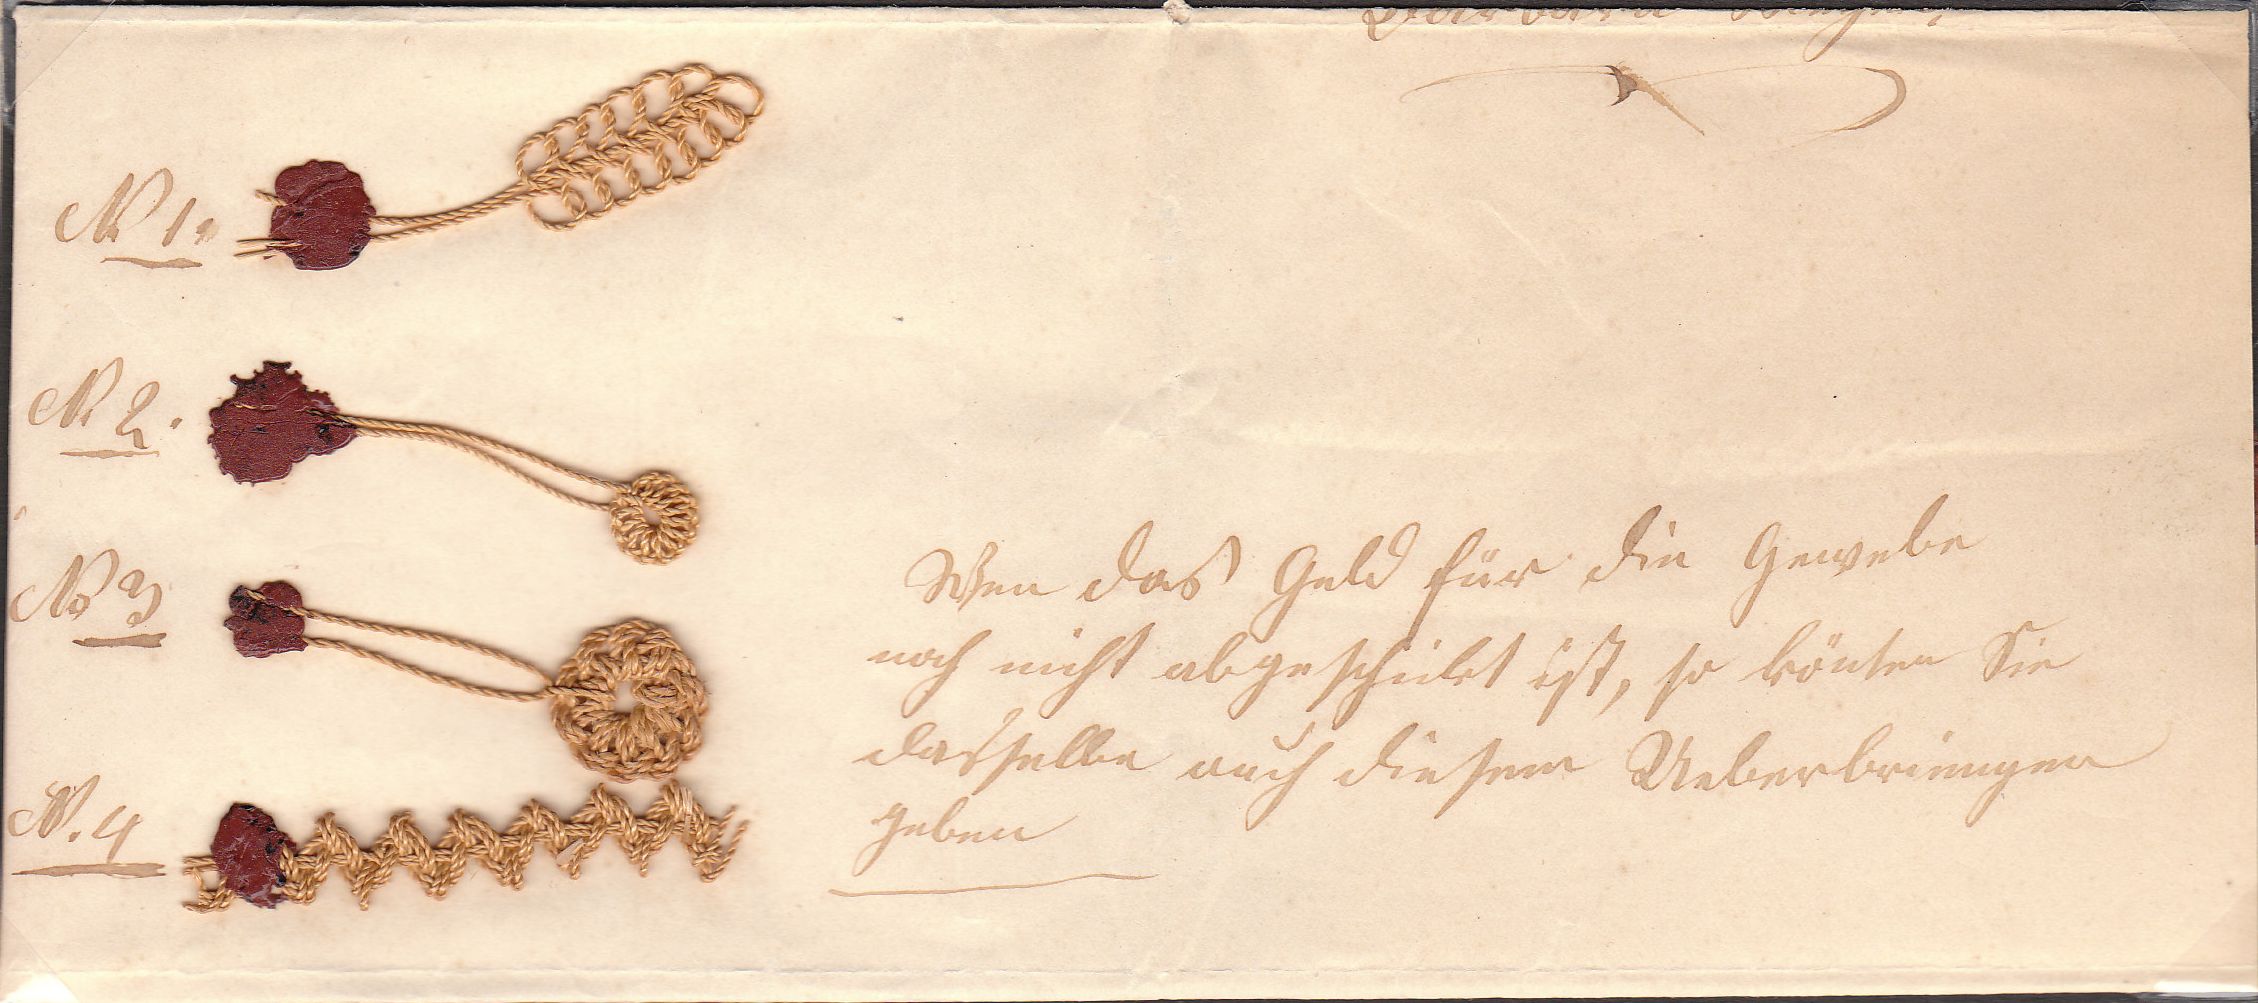 Barbara
N 1.
N. 2.
No 3
N. 4
Wen das Geld für die Gewebe
noch nicht abgeschickt ist, so könten Sie
dasselbe auch diesem Ueberbringer
geben